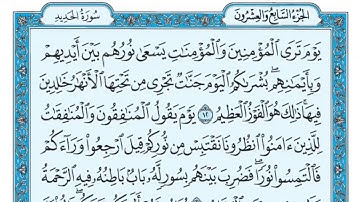 الجزء السابع والعشرون
سورة الحديد
يَوْمَ تَرَى الْمُؤْمِنِينَ وَالْمُؤْمِنَاتِ يَسْعَى نُورُهُم بَيْنَ أَيْدِيهِمْ
وَبِأَيْمَانِهِم بُشْرَاكُمُ الْيَوْمَ جَنَّاتٌ تَجْرِي مِن تَحْتِهَا الْأَنْهَارُ خَالِدِينَ
فِيهَا ذَٰلِكَ هُوَ الْفَوْزُ الْعَظِيمُ ١٢ يَوْمَ يَقُولُ الْمُنَافِقُونَ وَالْمُنَافِقَاتُ
لِلَّذِينَ ءَامَنُوا انظُرُونَا نَقْتَبِسْ مِن نُّورِكُمْ قِيلَ ارْجِعُوا وَرَاءَكُمْ
فَالْتَمِسُوا نُورًا فَضُرِبَ بَيْنَهُم بِسُورٍ لَّهُ بَابٌ بَاطِنُهُ فِيهِ الرَّحْمَةُ